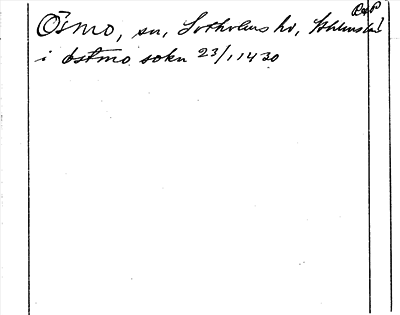 Ösmo, sn, Sotholms hd, Sthlms län
i østmo sokn 23/1 1430